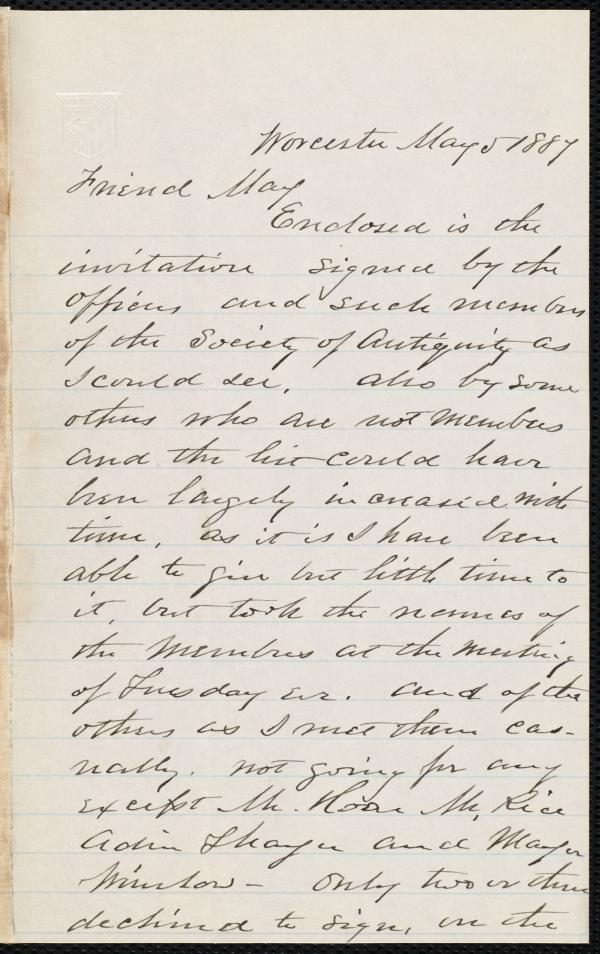 Worcester May 5 1887
Friend May
Enclosed is the
invitation signed by the
officers and such members
of the Society of Antiquity as
I could see, also by some
others who are not members
and the list could have
been largely increased with
time, as it is I have been
able to give but little time to
it, but took the names of
the members at the meeting
of Tuesday eve. and of the
others as I met them cas-
ually. not going for any
except Mr. Hoar Mr. Rice
Adin Thayer and Mayor
Winslow - Only two or three
declined to sign, on the